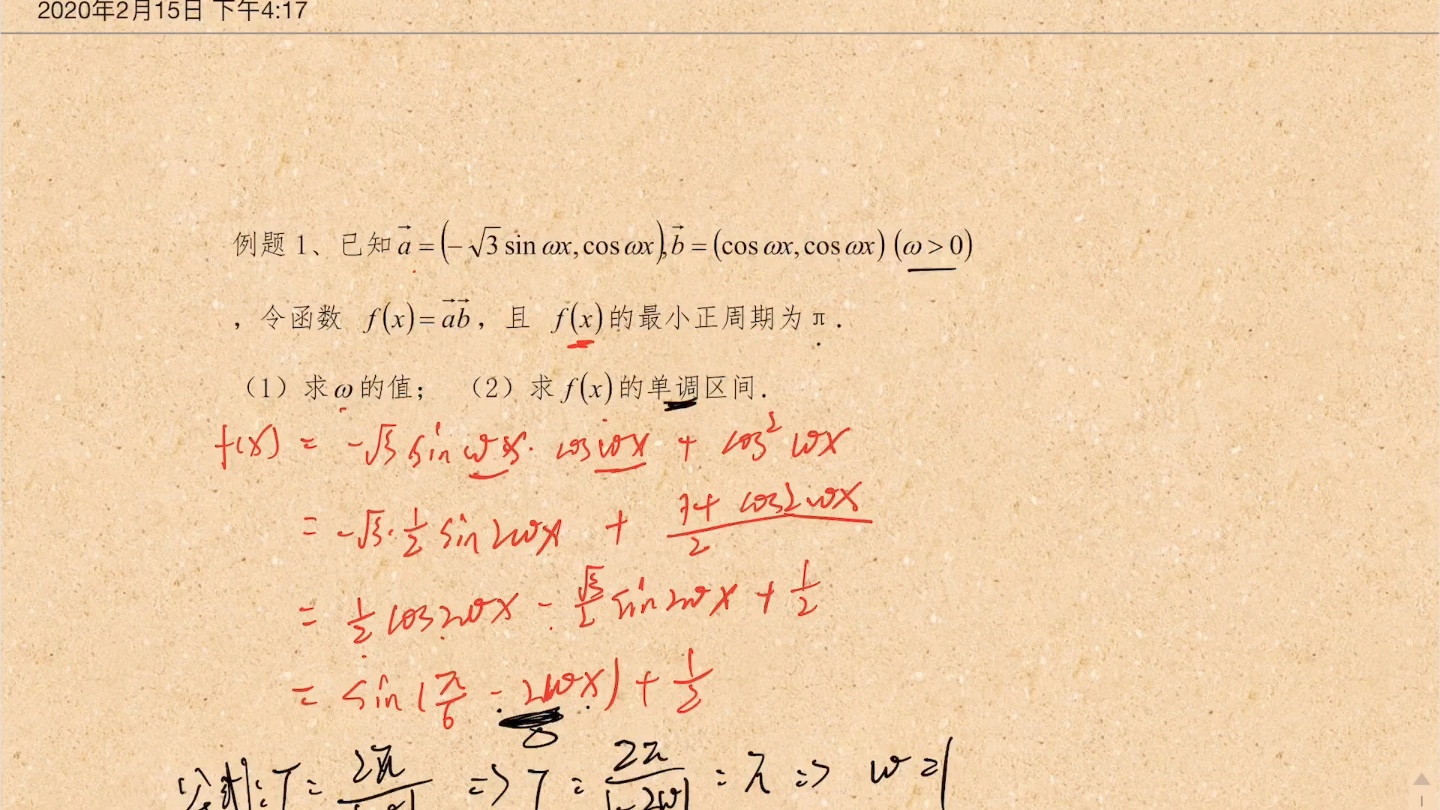 2020年2月15日 下午4:17
例题 1、已知 a⃗ = (−√3 sin ωx, cos ωx), b⃗ = (cos ωx, cos ωx) (ω > 0)
，令函数 f(x) = a⃗b⃗，且 f(x)的最小正周期为π．
（1）求ω的值；（2）求 f(x)的单调区间．
f(x) = −√3 sin ωx · cos ωx + cos² ωx
= −√3 · 1/2 sin 2ωx + (1 + cos 2ωx)/2
= 1/2 cos 2ωx − √3/2 sin 2ωx + 1/2
= sin(π/6 − 2ωx) + 1/2
T = 2π/|ω| ⇒ T = 2π/|−2ω| = π ⇒ ω = 1